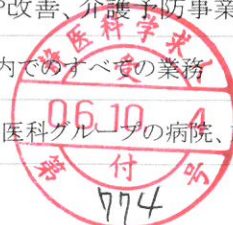 や改善、介護予防事業
内でのすべての業務
医科グループの病院、
医科学求人
受
06.10.4
第 付 号
774